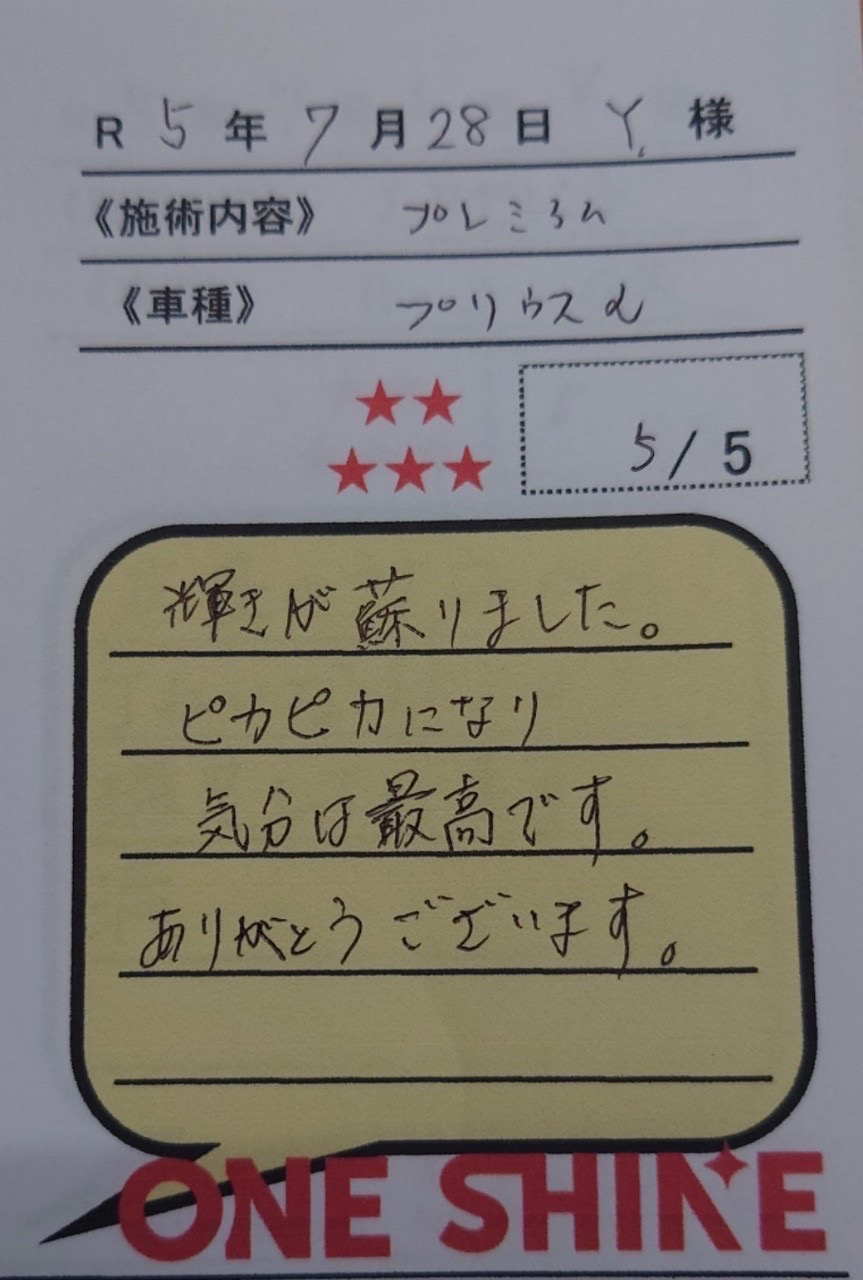 R 5年7月28日 Y. 様
《施術内容》 プレミアム
《車種》 プリウスα
★★
★★★
5/5
輝きが蘇りました。
ピカピカになり
気分は最高です。
ありがとうございます。
ONE SHINE